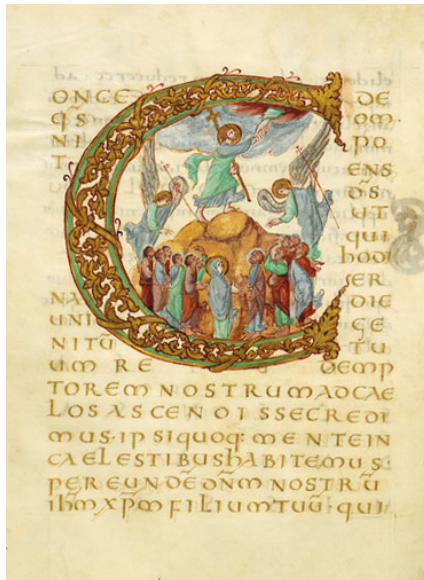 CONCE DE
q̄s om
NI PO
T ENS
d̄s
UT
qui
hodi
ER
NA DIE
UNI GE
NITŪ TU
UM RE DEMP
TOREM NOSTRUM AD CAE
LOS ASCENDISSE CREDI
MUS· IPSI QUOQ: MENTE IN
CAELESTIBUS HABITEMUS
PER EUNDĒ DN̄M NOSTRŪ
ih̄m xp̄m FILIUM TUŪ· QUI